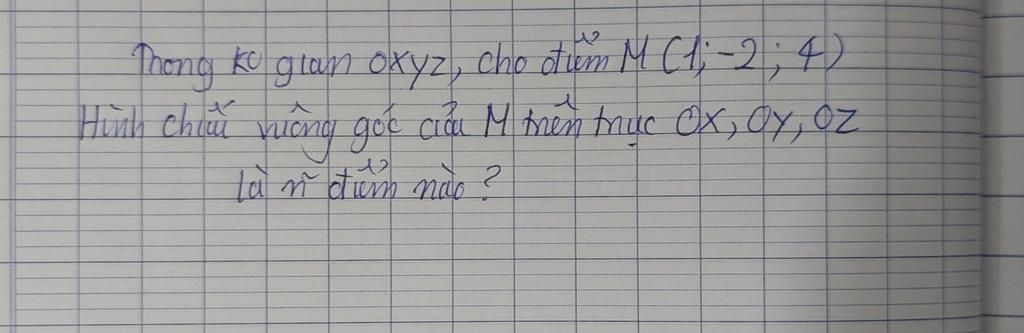 Trong ko gian Oxyz, cho điểm M (1; -2; 4)
Hình chiếu vuông góc của M trên trục OX, OY, OZ
là n~ điểm nào?